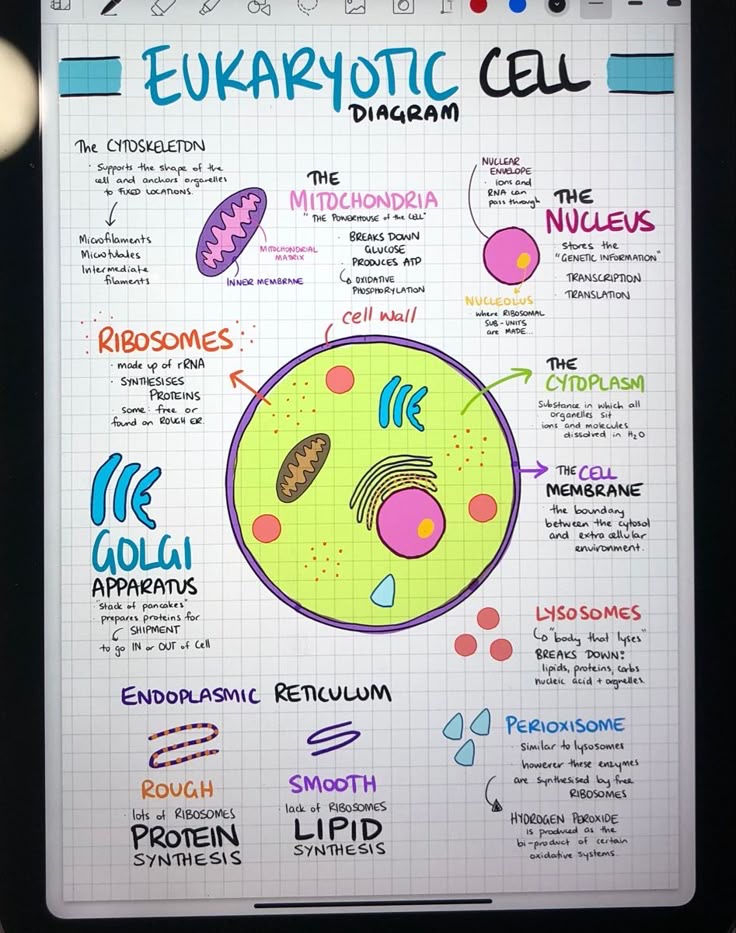 EUKARYOTIC CELL
DIAGRAM
The CYTOSKELETON
· Supports the shape of the
cell and anchors organelles
to FIXED LOCATIONS.
Microfilaments
Microtubules
Intermediate
filaments
THE
MITOCHONDRIA
"THE POWERHOUSE of the CELL"
· BREAKS DOWN
GLUCOSE
· PRODUCES ATP
OXIDATIVE
PHOSPHORYLATION
MITOCHONDRIAL
MATRIX
INNER MEMBRANE
NUCLEAR
ENVELOPE
· ions and
RNA can
pass through
THE
NUCLEUS
Stores the
"GENETIC INFORMATION"
· TRANSCRIPTION
· TRANSLATION
NUCLEOLUS
where RIBOSOMAL
SUB-UNITS
are MADE...
cell wall
RIBOSOMES
· made up of rRNA
· SYNTHESISES
PROTEINS
some: free or
found on ROUGH ER
THE
CYTOPLASM
Substance in which all
organelles sit
ions and molecules
dissolved in H₂O
THE CELL
MEMBRANE
· the boundary
between the cytosol
and extra cellular
environment.
GOLGI
APPARATUS
"stack of pancakes"
· prepares proteins for
SHIPMENT
to go IN or OUT of Cell
LYSOSOMES
"body that lyses"
BREAKS DOWN:
lipids, proteins, carbs
nucleic acid + organelles.
ENDOPLASMIC RETICULUM
ROUGH
lots of RIBOSOMES
PROTEIN
SYNTHESIS
SMOOTH
lack of RIBOSOMES
LIPID
SYNTHESIS
PERIOXISOME
· Similar to lysosomes
· however these enzymes
are synthesised by free
RIBOSOMES
HYDROGEN PEROXIDE
is produced as the
bi-product of certain
oxidative systems.